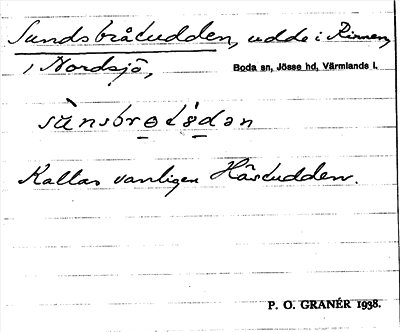 Sundsbråtudden, udde i Rinnen,
i Nordsjö, Boda sn, Jösse hd, Värmlands l.
sùnsbrɵtɵ̀dən
Kallas vanligen Håvtudden.
P. O. GRANÉR 1938.